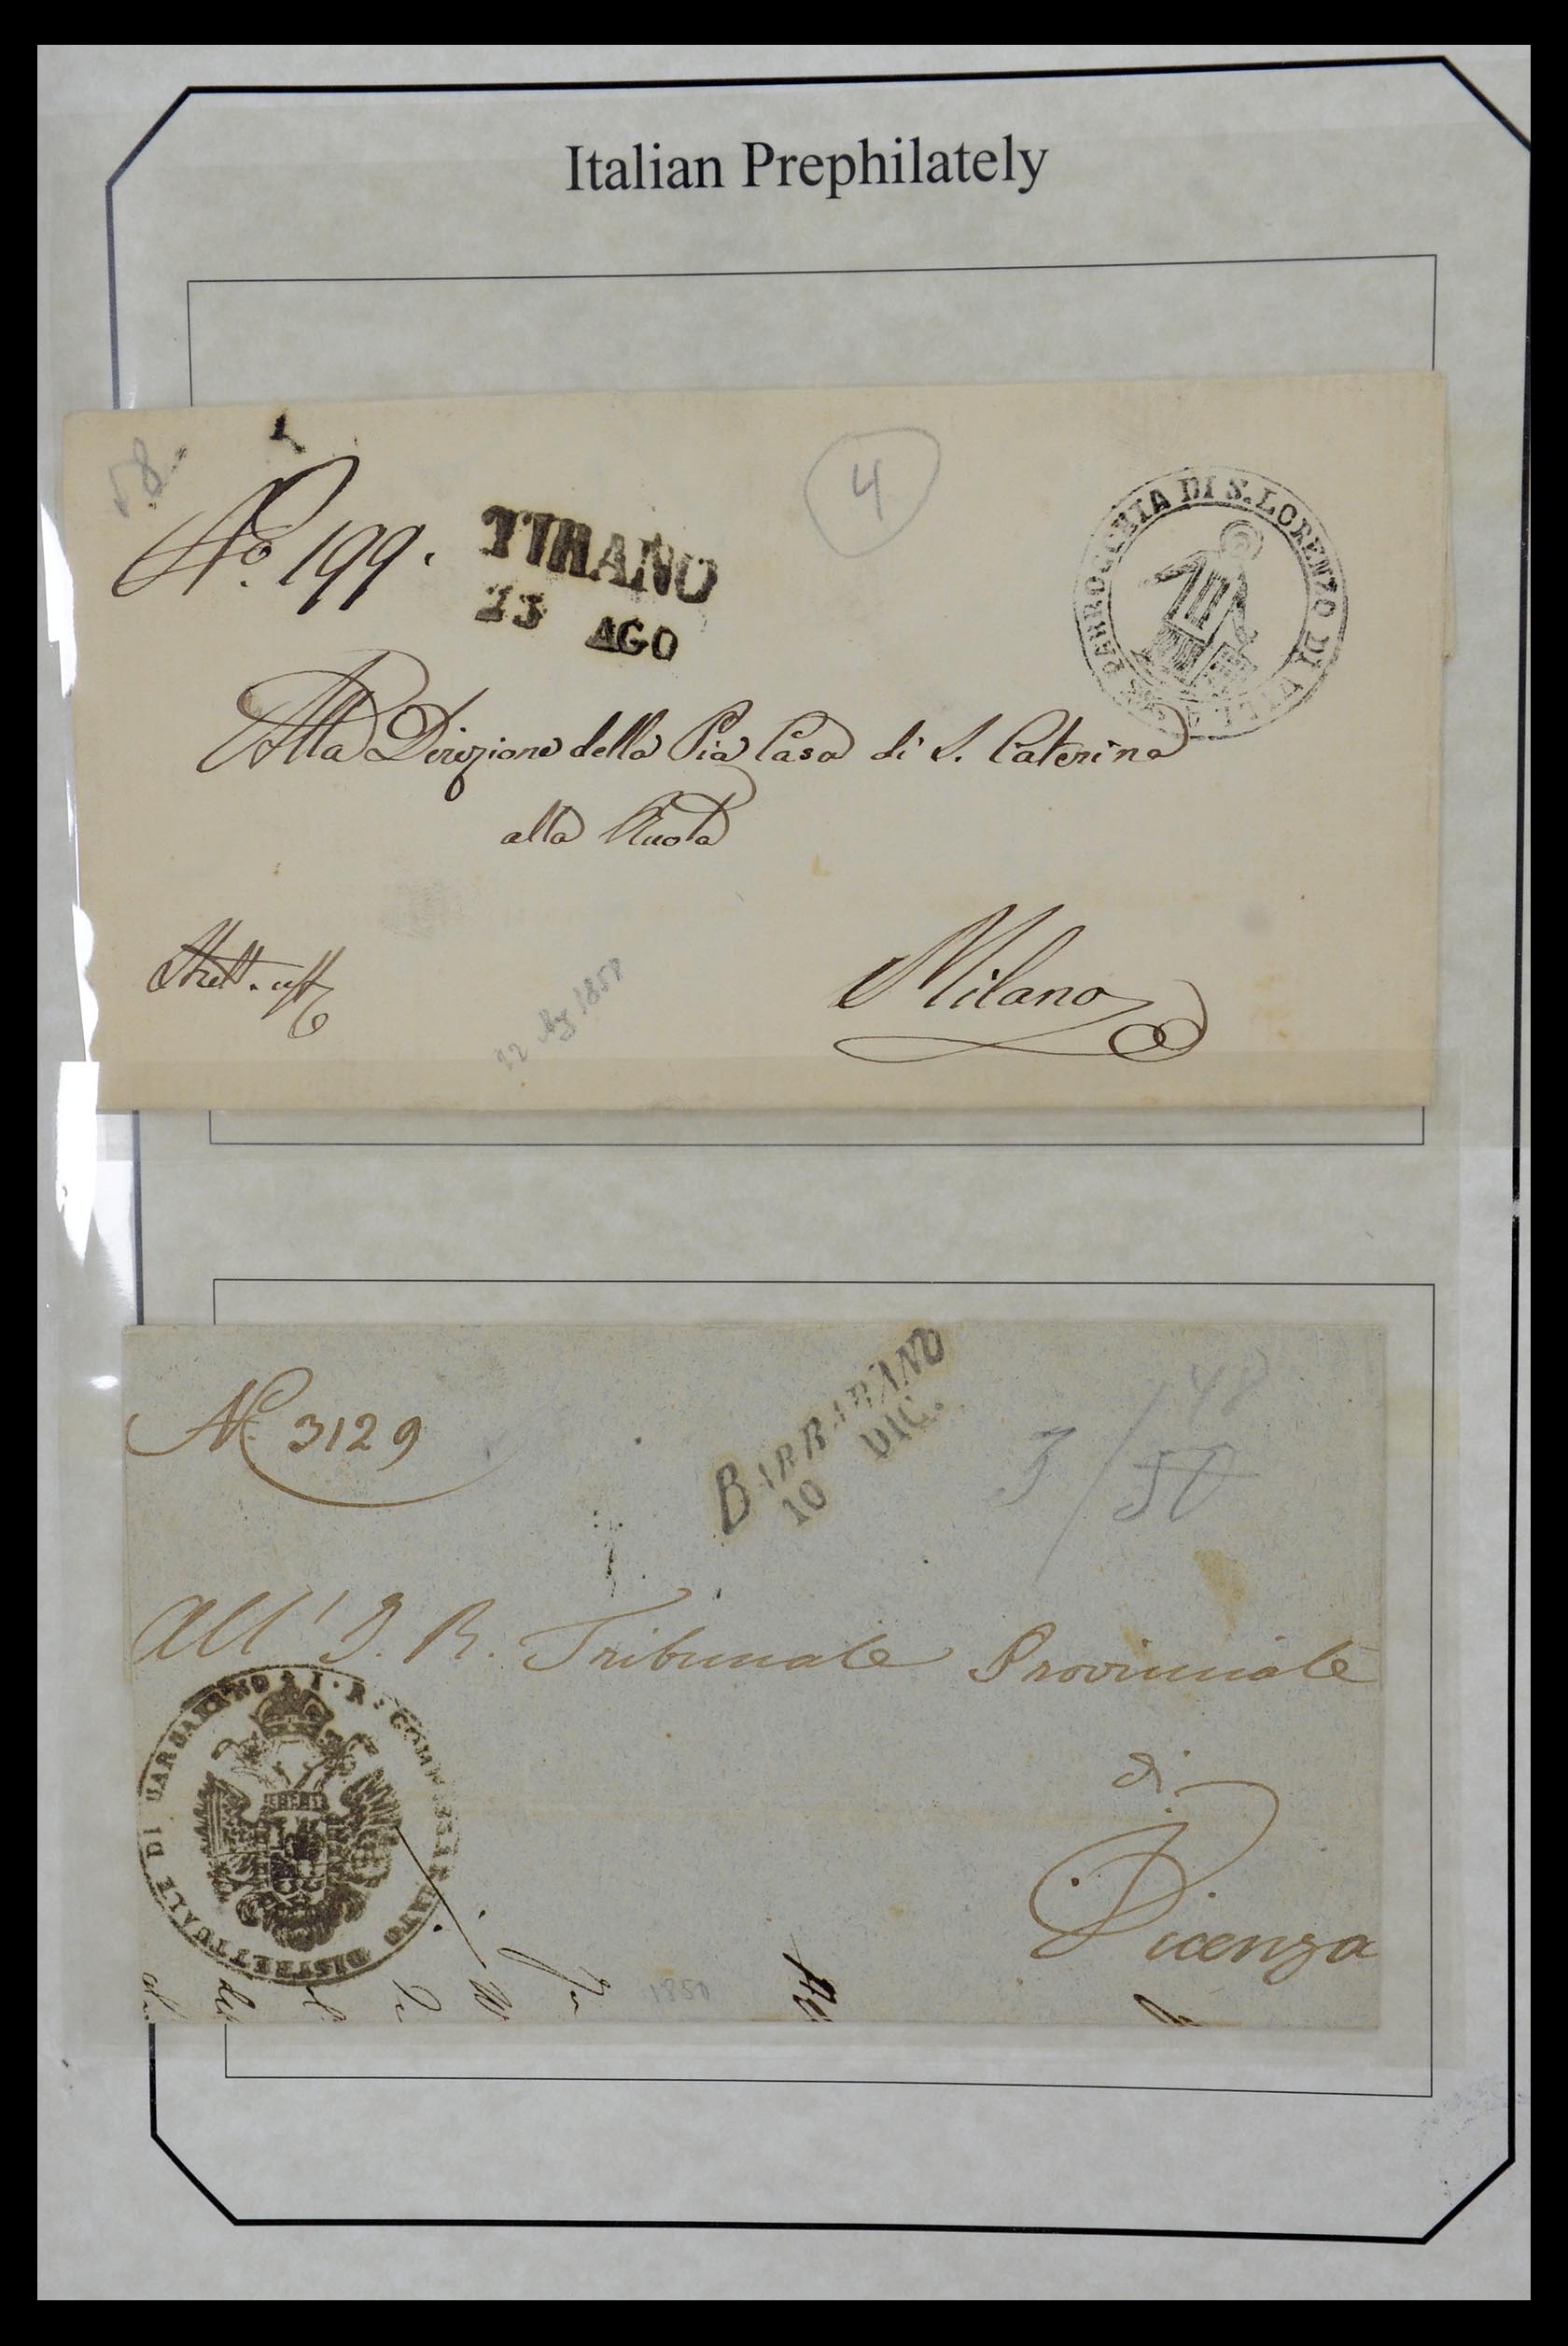 Italian Prephilately
58.
No. 199.
TIRANO
23 AGO
4
PARROCCHIA DI S. LORENZO DI
Alla Direzione della Pia Casa di S. Caterina
alla Ruota
Milano
22 Ag 1850
N. 3129
BARBARANO
10 DIC.
3/50
48
All' I. R. Tribunale Provinciale
I. R. COMMISSARIATO DISTRETTUALE DI BARBARANO
di
Vicenza
1850